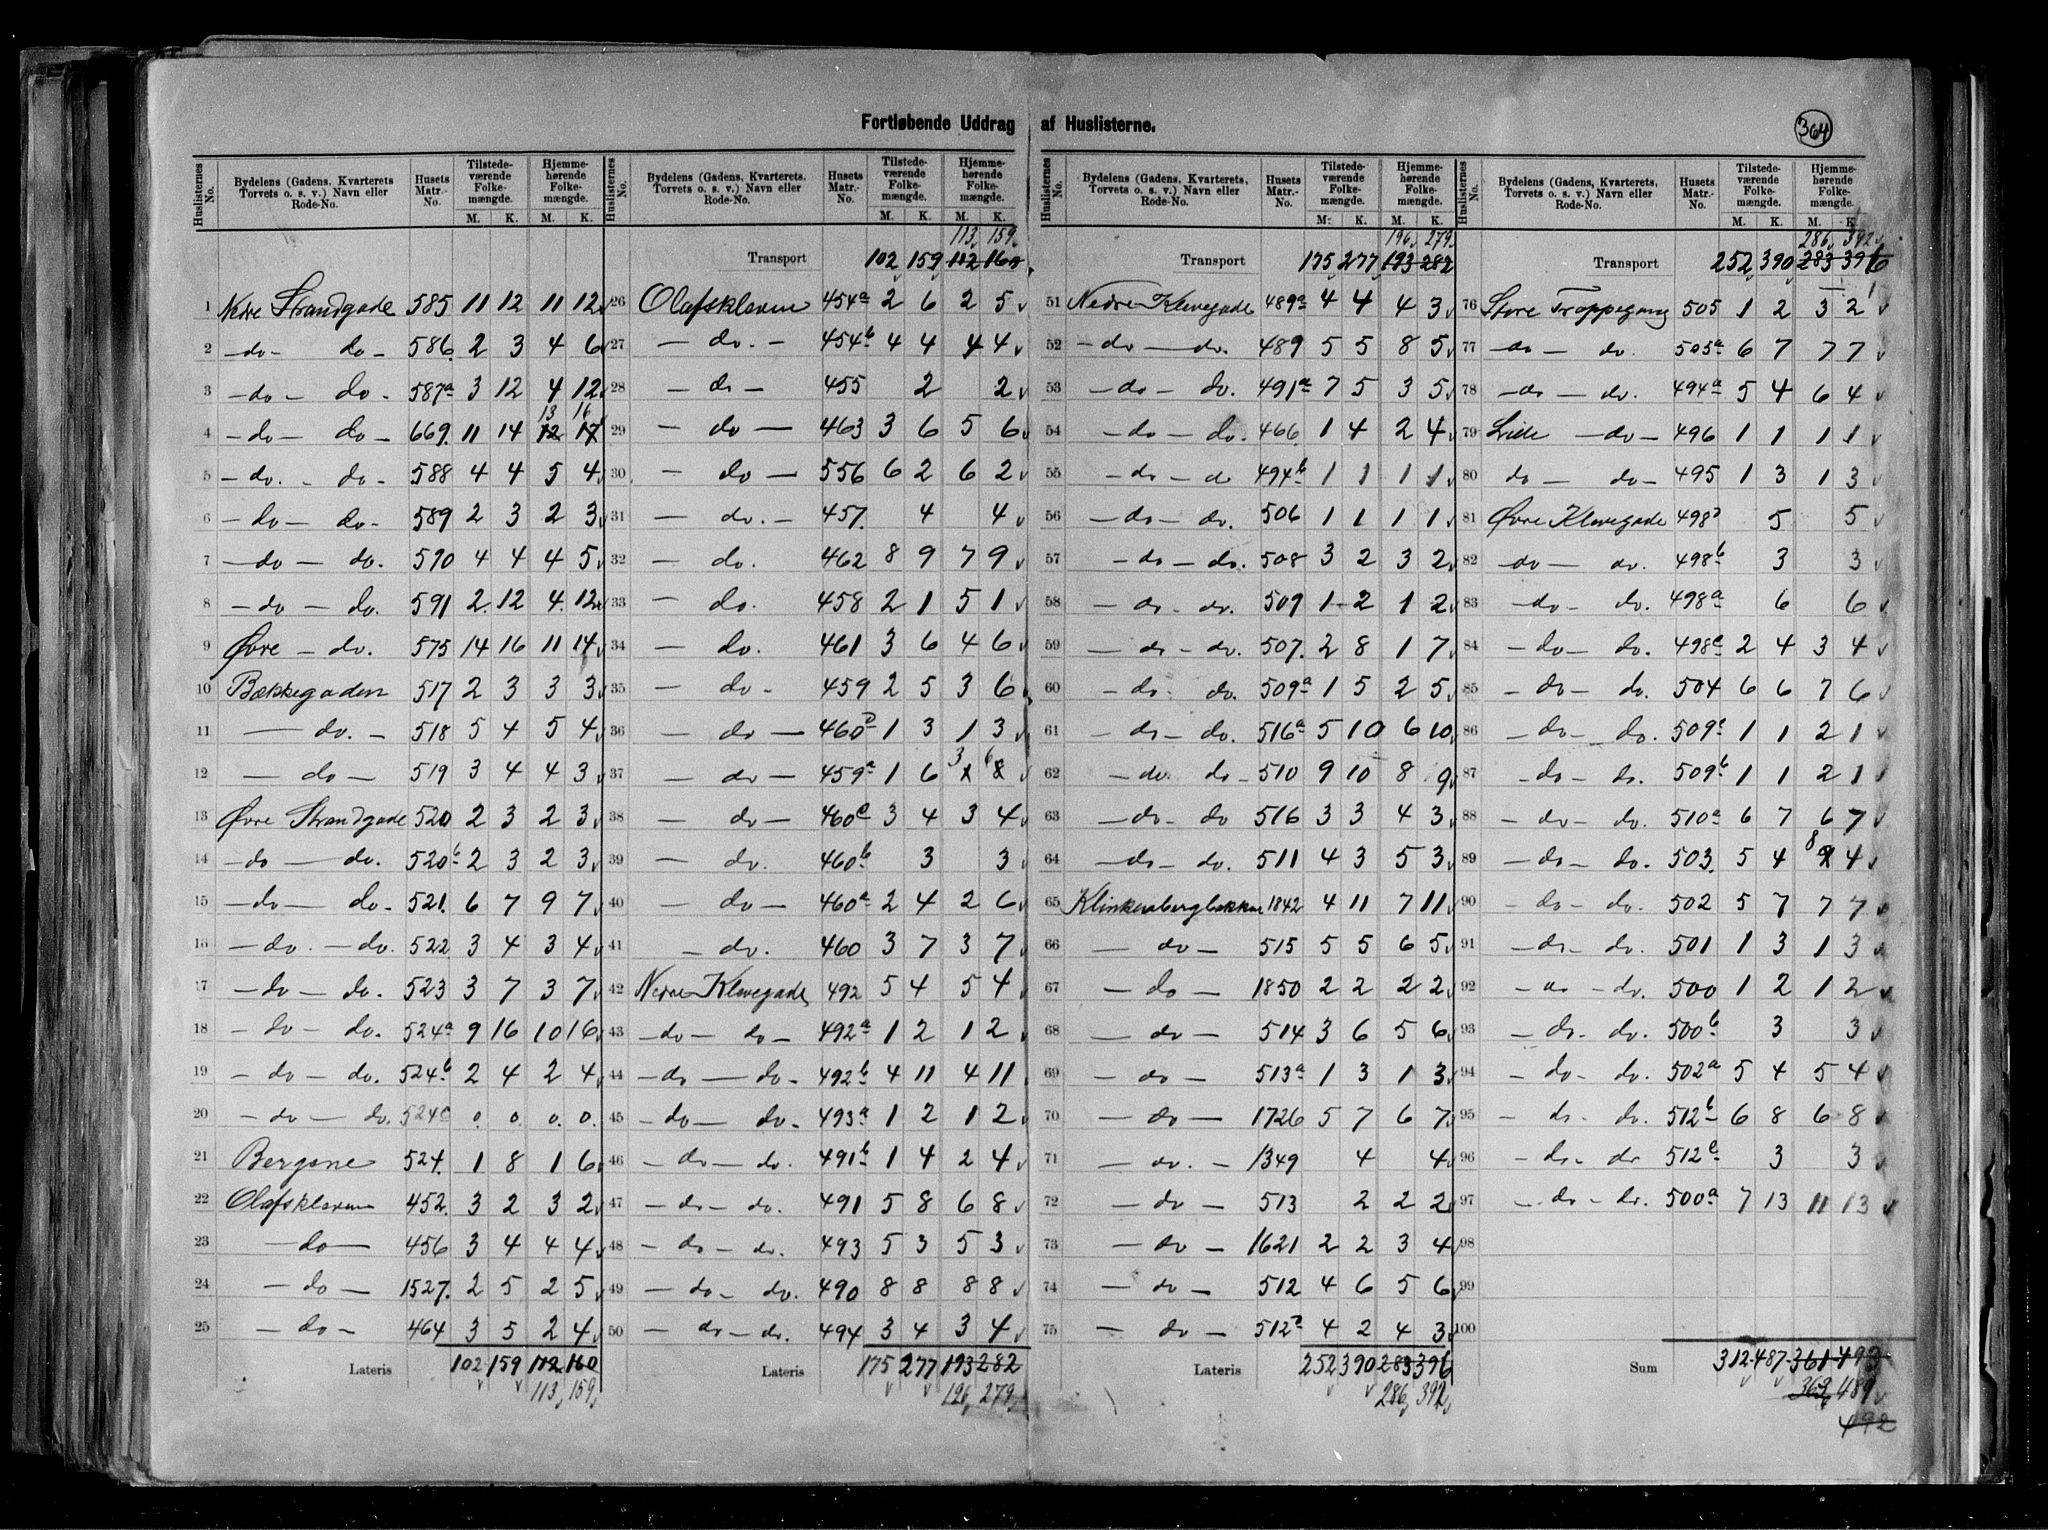 Fortløbende Uddrag af Huslisterne.
364
Huslisternes No. Bydelens (Gadens, Kvarterets, Torvets o. s. v.) Navn eller Rode-No. Husets Matr.-No. Tilstedeværende Folkemængde. M. K. Hjemmehørende Folkemængde. M. K.
1 Nedre Strandgade 585 11 12 11 12
2 -do- do- 586. 2 3 4 6
3 -do- do- 587a 3 12 4 12
13 16
4 -do- do- 669. 11 14 12 17
5 -do. - do- 588 4 4 5 4
6 -do- do- 589 2 3 2 3
7 -do- do. 590 4 4 4 5
8 -do- do. 591 2. 12 4. 12
9 Øvre - do. 575 14 16 11 14
10 Bækkegaden 517 2 3 3 3
11 - do. - 518 5 4 5 4
12 - do - 519 3 4 4 3
13 Øvre Strandgade 520 2 3 2 3
14 -do - do. 520b 2 3 2 3
15 -do- do- 521. 6 7 9 7
16 -do. - do. 522 3 4 3 4
17 -do- do. 523 3 7 3 7
18 -do- do. 524a 9 16 10 16
19 -do- do. 524b 2 4 2 4
20 -do- do. 524c 0. 0 0. 0.
21 Bergene 524. 1 8 1 6
22 Olafskleven 452. 3 2 3 2
23 -do- 456 3 4 4 4
24 -do- 1527. 2 5 2 5
25 -do- 464 3 5 2 4
Lateris 102 159 112 160
113, 159,
Huslisternes No. Bydelens (Gadens, Kvarterets, Torvets o. s. v.) Navn eller Rode-No. Husets Matr.-No. Tilstedeværende Folkemængde. M. K. Hjemmehørende Folkemængde. M. K.
113, 159,
Transport 102 159 112 160
26 Olafskleven 454a 2 6 2 5
27 - do. - 454b 4 4 4 4
28 - do - 455 2 2
29 - do - 463 3 6 5 6
30 - do - 556 6 2 6 2
31 - do. - 457. 4 4
32 - do. 462 8 9 7 9
33 - do. 458 2 1 5 1
34 - do. 461 3 6 4 6
35 - do - 459 2 5 3 6
36 - do - 460D 1 3 1 3
3 6
37 - do - 459a 1 6 8
38 - do - 460c 3 4 3 4
39 - do. 460b 3 3
40 - do - 460a 2 4 2 6
41 - do. 460 3 7 3 7
42 Nedre Klevegade 492 5 4 5 4
43 -do- do- 492a 1 2 1 2
44 -do- do- 492b 4 11 4 11
45 -do- do- 493a 1 2 1 2
46 -do- do. 491b 1 4 2 4
47 -do- do. 491 5 8 6 8
48 -do- do. 493 5 3 5 3
49 -do- do. 490 8 8 8 8
50 -do- do. 494 3 4 3 4
Lateris 175 277 193 282
196, 279,
Huslisternes No. Bydelens (Gadens, Kvarterets, Torvets o. s. v.) Navn eller Rode-No. Husets Matr.-No. Tilstedeværende Folkemængde. M. K. Hjemmehørende Folkemængde. M. K.
196, 279,
Transport 175 277 193 282
51 Nedre Klevegade 489a 4 4 4 3
52 -do-do. 489 5 5 8 5
53 -do- do. 491a 7 5 3 5
54 -do- do. 466. 1 4 2 4
55 -do- do 494b 1 1 1 1
56 -do- do. 506 1 1 1 1
57 -do- do. 508 3 2 3 2
58 -do- do. 509 1 2 1 2
59 -do- do. 507. 2 8 1 7
60 -do- do. 509a 1 5 2 5
61 -do- do. 516a 5 10 6 10
62 -do. do- 510 9 10 8 9
63 -do- do 516 3 3 4 3
64 -do- do. 511 4 3 5 3
65 Klinkenbergbakken 1842 4 11 7 11
66 - do - 515 5 5 6 5
67 - do - 1850 2 2 2 2
68 - do - 514 3 6 5 6
69 - do - 513a 1 3 1 3
70 - do - 1726 5 7 6 7
71 - do. - 1349 4 4
72 - do - 513 2 2 2
73 - do - 1621 2 2 3 4
74 - do - 512 4 6 5 6
75 - do - 512D 4 2 4 3
Lateris 252 390 283 396
286, 392,
Huslisternes No. Bydelens (Gadens, Kvarterets, Torvets o. s. v.) Navn eller Rode-No. Husets Matr.-No. Tilstedeværende Folkemængde. M. K. Hjemmehørende Folkemængde. M. K.
286, 392,
Transport 252 390 283 396
76 Store Trappegang 505 1 2 3 2
77 -do- do. 505a 6 7 7 7
78 -do- do. 494a 5 4 6 4
79 Lille -do- 496 1 1 1 1
80 do - do- 495 1 3 1 3
81 Øvre Klevegade 498D 5 5
82 -do- do. 498b 3 3
83 -do- do. 498a 6 6
84 -do- do. 498c 2 4 3 4
85 -do- do. 504 6 6 7 6
86 -do- do. 509c 1 1 2 1
87 -do- do. 509b 1 1 2 1
88 -do- do. 510a 6 7 6 7
8
89 -do- do. 503. 5 4 9 4
90 -do- do. 502 5 7 7 7
91 -do- do. 501 1 3 1 3
92 -do-do. 500 1 2 1 2
93 -do- do. 500b 3 3
94 -do- do. 502a 5 4 5 4
95 -do- do. 512b 6 8 6 8
96 -do- do 512c 3 3
97 -do- do. 500a 7 13 11 13
98
99
100
Sum 312 487 361 493
363, 489
492